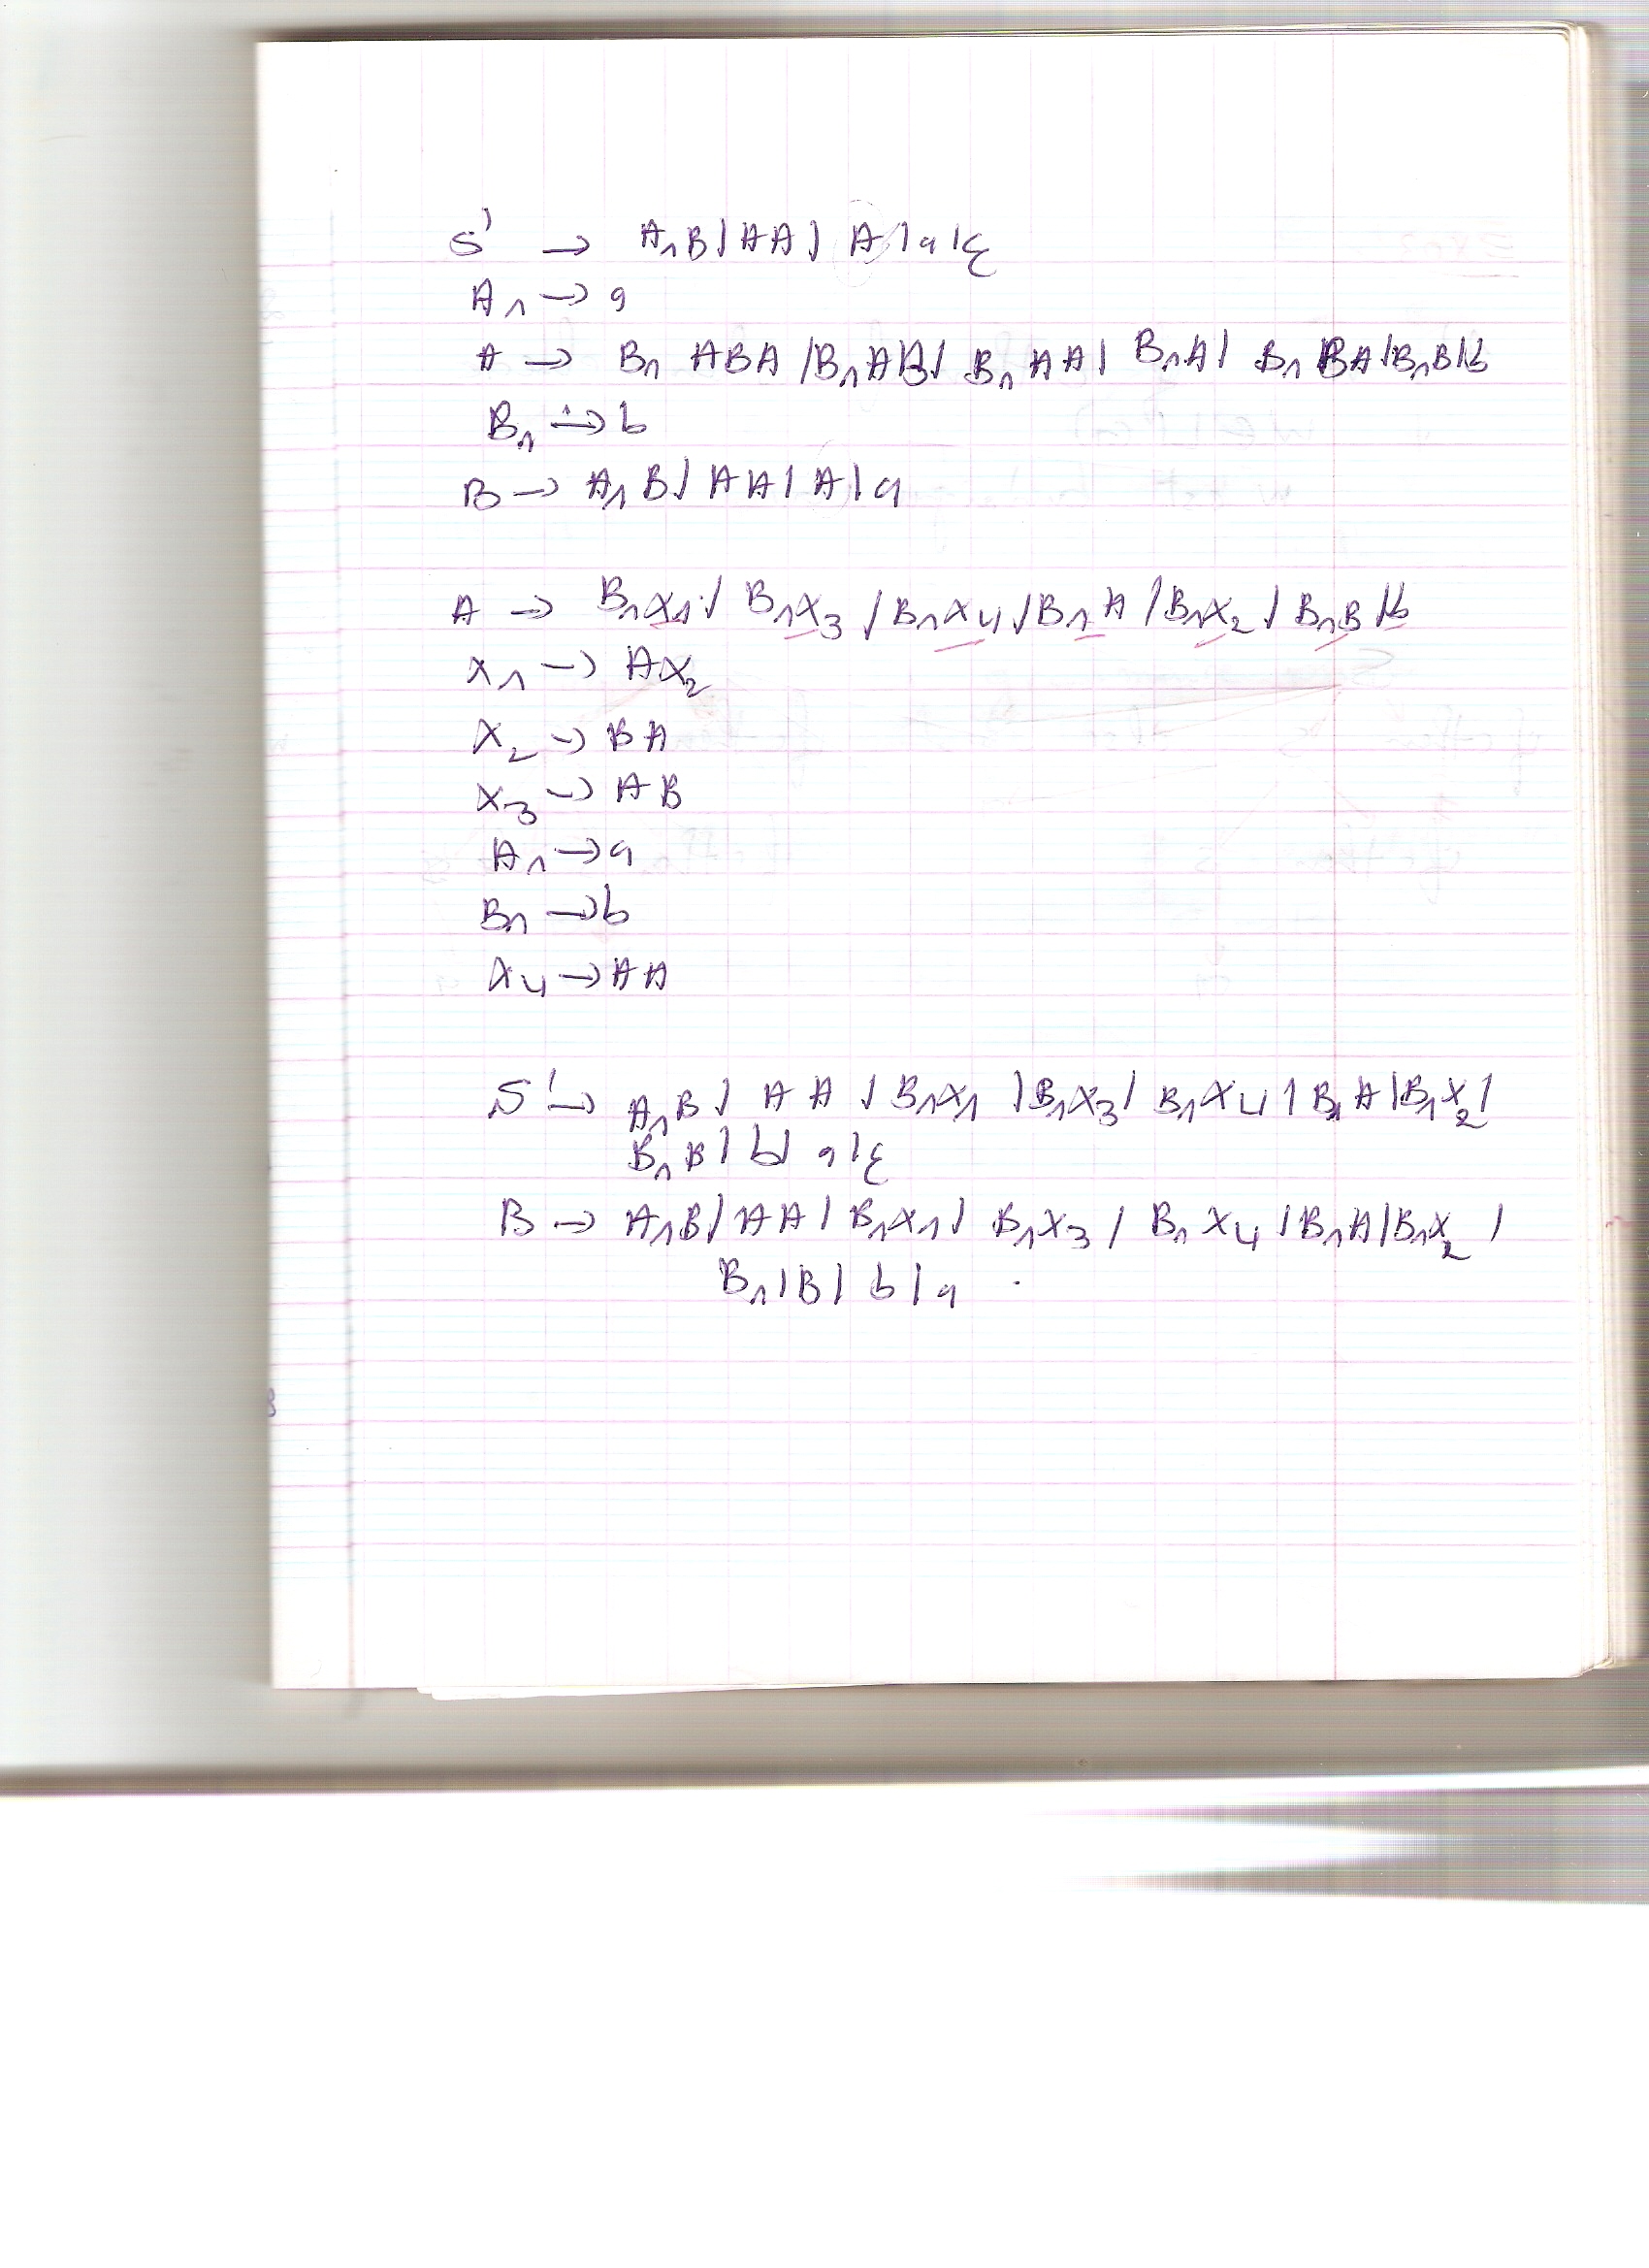 S' → A₁B | AA | A | a | ε
A₁ → a
A → B₁ ABA / B₁AB / B₁AA | B₁A | B₁BA | B₁B | b
B₁ → b
B → A₁B | AA | A | a
A → B₁X₁ / B₁X₃ / B₁X₄ / B₁A / B₁X₂ / B₁B | b
X₁ → AX₂
X₂ → BA
X₃ → AB
A₁ → a
B₁ → b
X₄ → AA
S' → A₁B | AA | B₁X₁ | B₁X₃ | B₁X₄ | B₁A | B₁X₂ |
B₁B | b | a | ε
B → A₁B | AA | B₁X₁ | B₁X₃ / B₁X₄ | B₁A | B₁X₂ |
B₁ | B | b | a